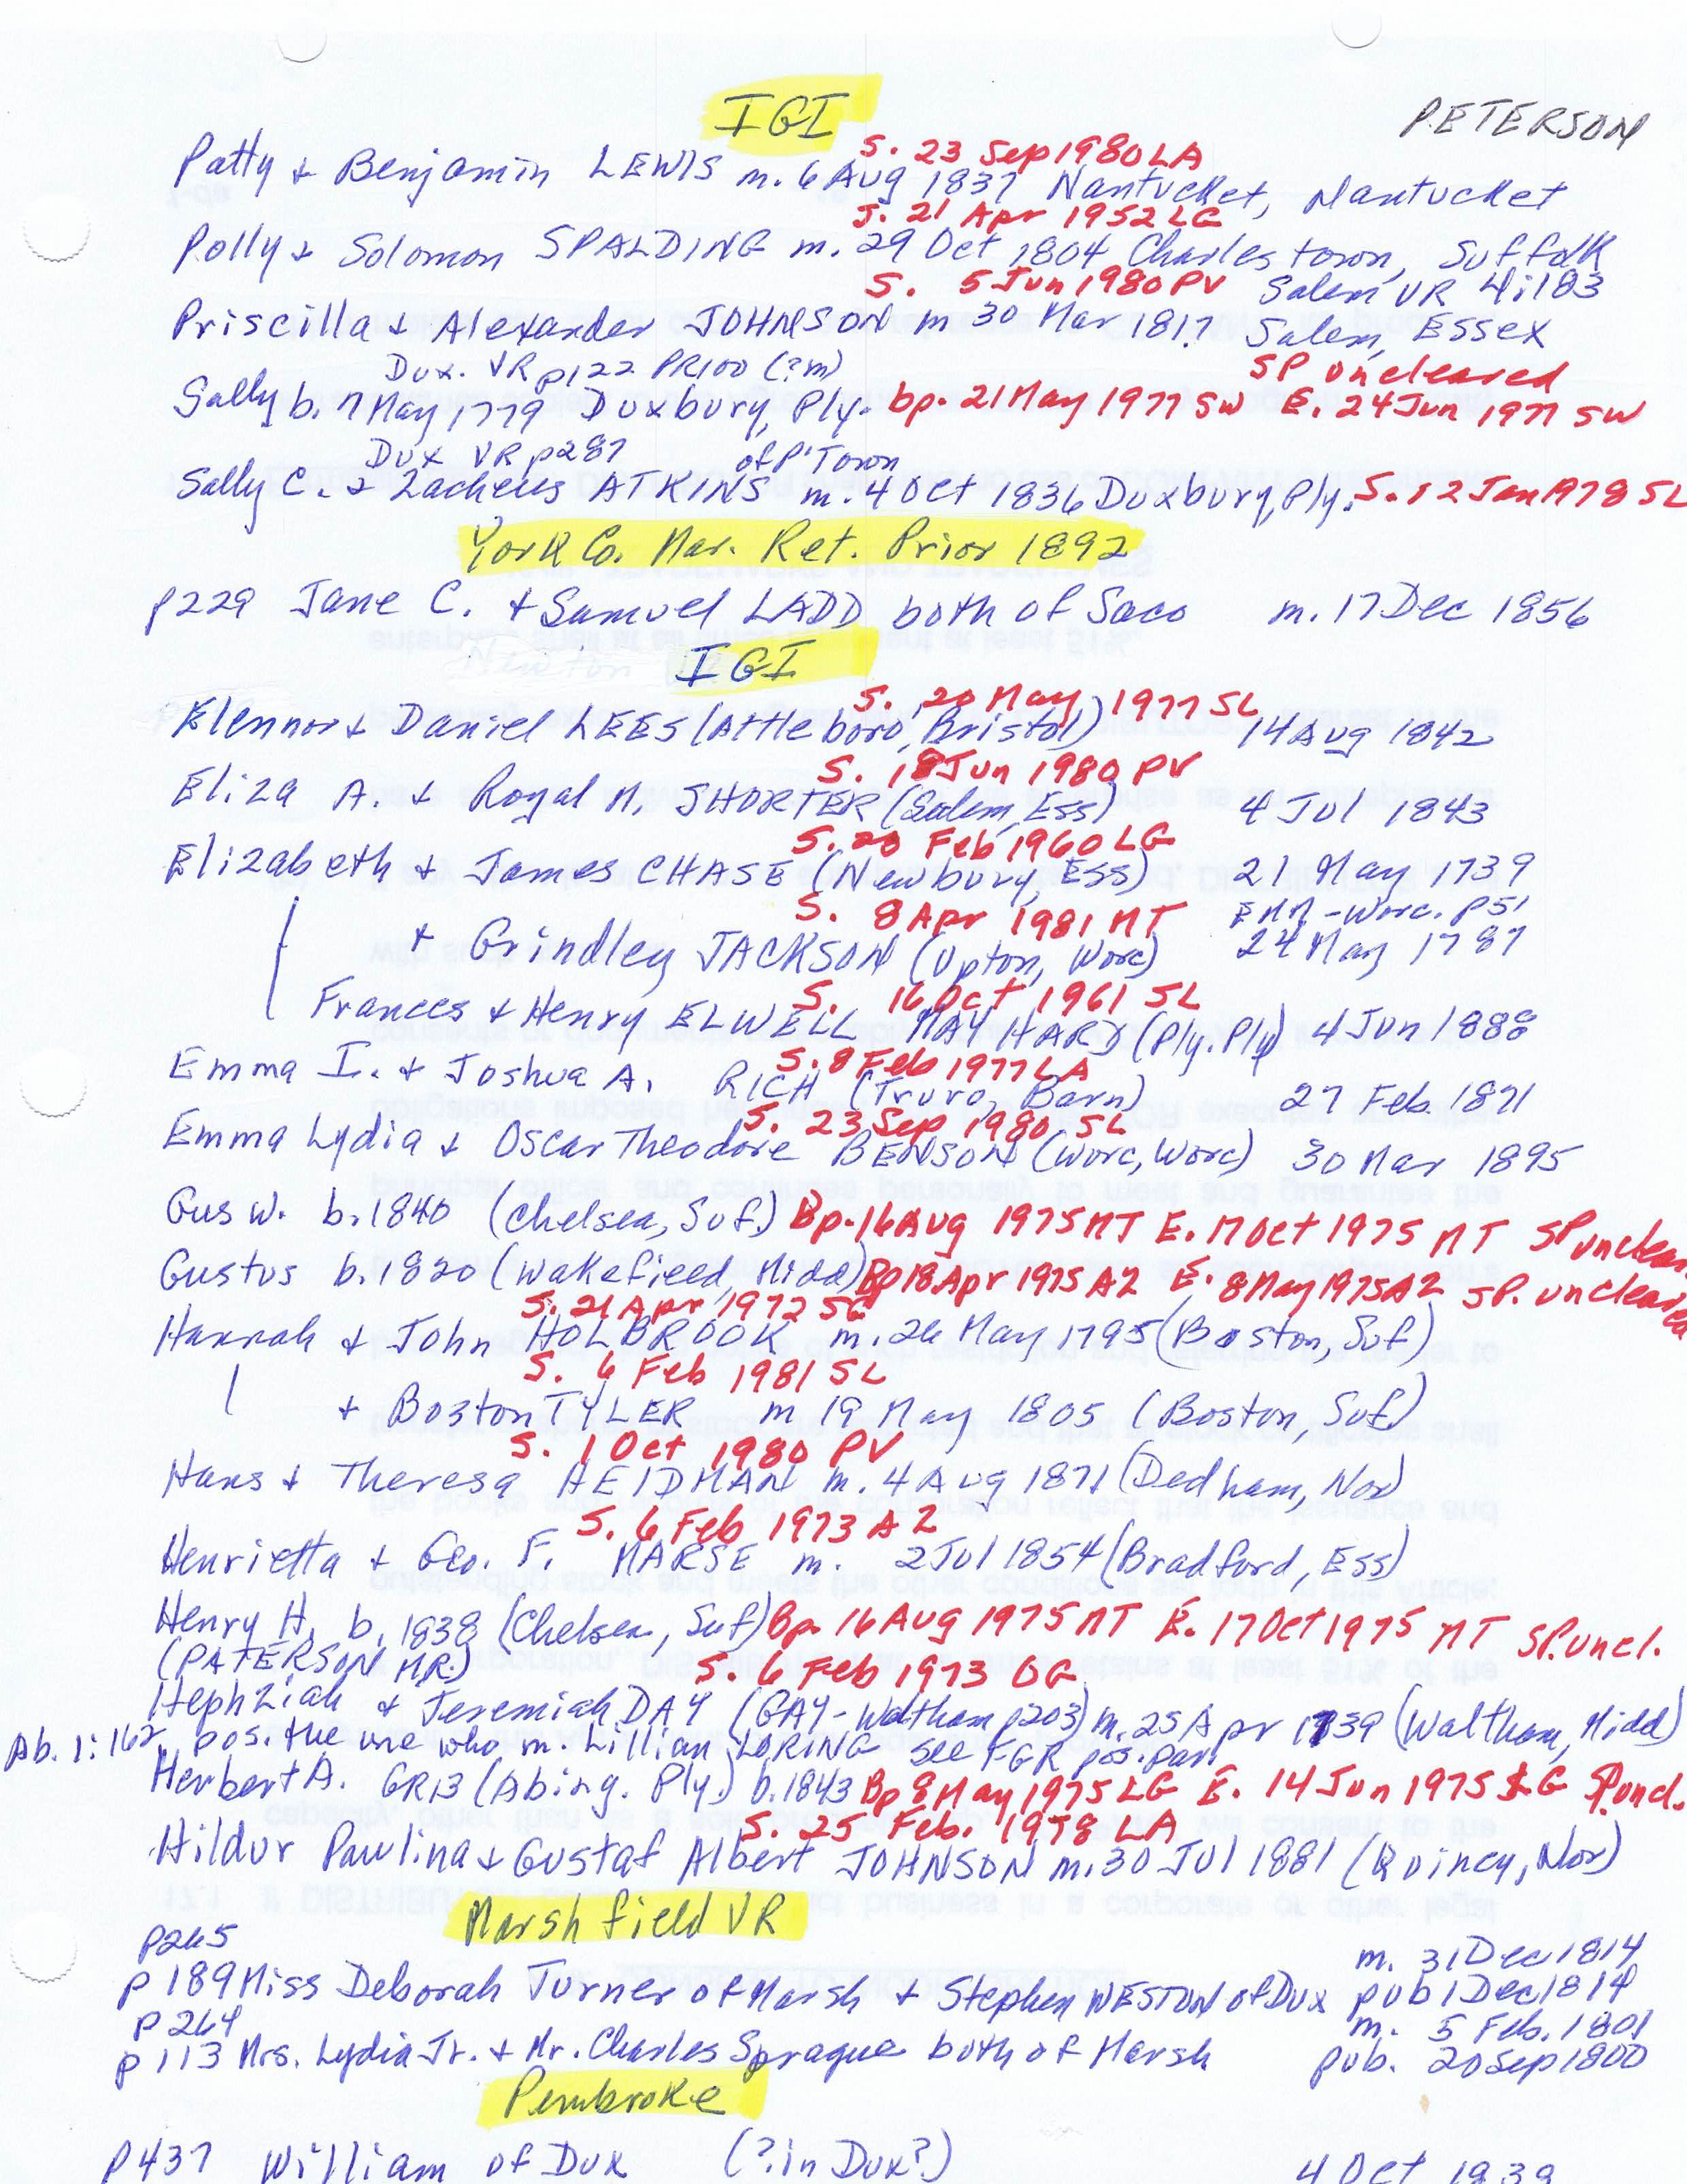 IGI
PETERSON
S. 23 Sep 1980 LA
Patty & Benjamin LEWIS m. 6 Aug 1837 Nantucket, Nantucket
S. 21 Apr 1952 LG
Polly & Solomon SPALDING m. 29 Oct 1804 Charlestown, Suffolk
S. 5 Jun 1980 PV Salem VR 4:183
Priscilla & Alexander JOHNSON m 30 Mar 1817 Salem, Essex
Dux. VR p122 PR100 (?m) SP uncleared
Sally b. 7 May 1779 Duxbury, Ply. bp. 21 May 1977 SW E. 24 Jun 1977 SW
Dux VR p287 of P'Town
Sally C. & Zacheus ATKINS m. 4 Oct 1836 Duxbury, Ply. S. 12 Jan 1978 SL
York Co. Mar. Ret. Prior 1892
p229 Jane C. + Samuel LADD both of Saco m. 17 Dec 1856
IGI
S. 20 May 1977 SL
Elennor & Daniel LEES (Attleboro, Bristol) 14 Aug 1842
S. 18 Jun 1980 PV
Eliza A. & Royal M. SHORTER (Salem, Ess) 4 Jul 1843
S. 20 Feb 1960 LG
Elizabeth & James CHASE (Newbury, Ess) 21 May 1739
S. 8 Apr 1981 MT EMM - Worc. p51
+ Grindley JACKSON (Upton, Worc) 24 May 1787
S. 16 Oct 1961 SL
Frances & Henry ELWELL MAYHARD (Ply. Ply) 4 Jun 1888
S. 8 Feb 1977 LA
Emma I. & Joshua A. RICH (Truro, Barn) 27 Feb. 1871
S. 23 Sep 1980 SL
Emma Lydia & Oscar Theodore BENSON (Worc, Worc) 30 Mar 1895
Gus W. b. 1840 (Chelsea, Suf.) Bp. 16 Aug 1975 MT E. 17 Oct 1975 MT SP unclear
Gustus b. 1820 (Wakefield, Midd) Bp 18 Apr 1975 AZ E. 8 May 1975 AZ SP. uncleared
S. 21 Apr 1972 SG
Hannah & John HOLBROOK m. 26 May 1795 (Boston, Suf)
S. 6 Feb 1981 SL
+ Boston TYLER m 19 May 1805 (Boston, Suf)
S. 1 Oct 1980 PV
Hans & Theresa HEIDMAN m. 4 Aug 1871 (Dedham, Nor)
S. 6 Feb 1973 AZ
Henrietta & Geo. F. MARSE m. 2 Jul 1854 (Bradford, Ess)
Henry H. b. 1838 (Chelsea, Suf) Bp. 16 Aug 1975 MT E. 17 Oct 1975 MT SP. uncl.
(PATERSON MR.) S. 6 Feb 1973 OG
Hephziah & Jeremiah DAY (GAY - Waltham p203) m. 25 Apr 1739 (Waltham, Midd)
Ab. 1: 162 pos. the one who m. Lillian LORING see FGR pos. par.
Herbert A. GR13 (Abing. Ply.) b. 1843 Bp 8 May 1975 LG E. 14 Jun 1975 LG SP uncl.
S. 25 Feb. 1978 LA
Hildur Paulina & Gustaf Albert JOHNSON m. 30 Jul 1881 (Quincy, Nor)
Marshfield VR
p265 m. 31 Dec 1814
p 189 Miss Deborah Turner of Marsh + Stephen WESTON of Dux pub 1 Dec 1814
p 264 m. 5 Feb. 1801
p 113 Mrs. Lydia Jr. + Mr. Charles Sprague both of Marsh pub. 20 Sep 1800
Pembroke
p437 William of Dux (?in Dux?) 4 Oct 1839